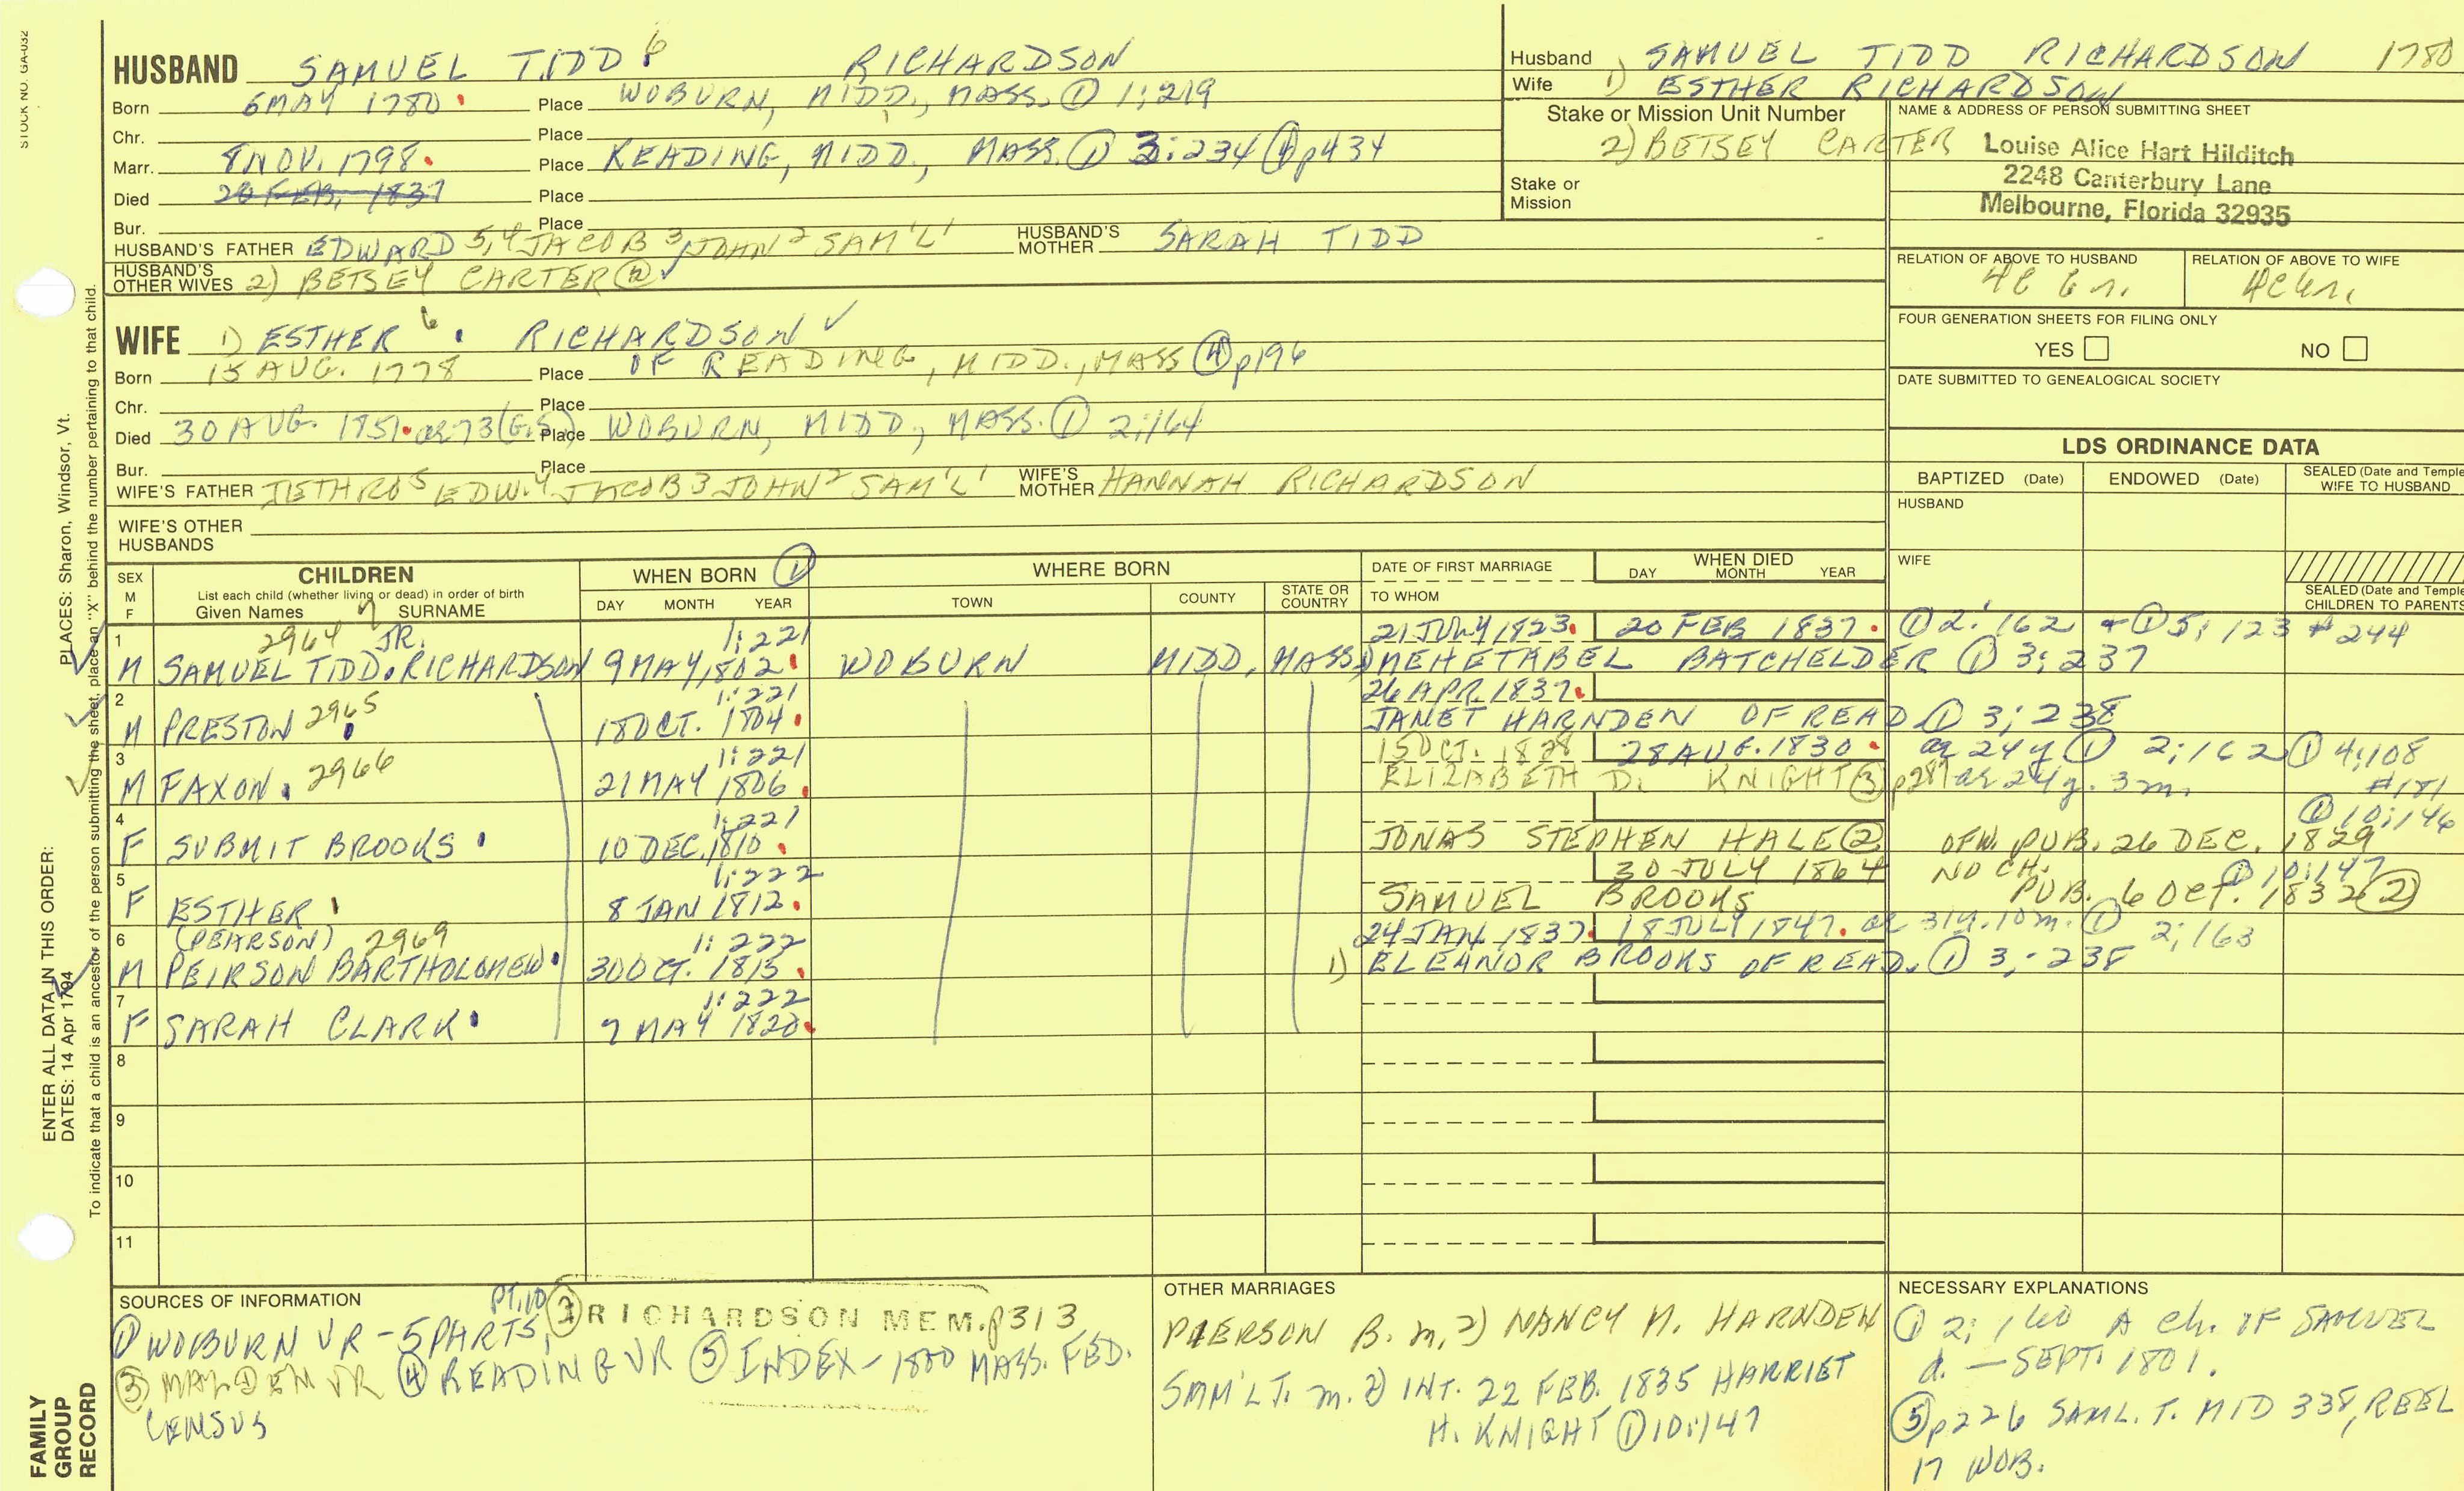 STOCK NO. GA-032
HUSBAND SAMUEL TIDD 6 RICHARDSON
Born 6 MAY 1780 Place WOBURN, MIDD., MASS. ① 1:219
Chr. Place
Marr. 8 NOV. 1798 Place READING, MIDD., MASS. ① 3:234 ④ p434
Died 20 FEB. 1837 Place
Bur. Place
HUSBAND'S FATHER EDWARD 5,4 JACOB 3 JOHN 2 SAM'L 1 HUSBAND'S MOTHER SARAH TIDD
HUSBAND'S OTHER WIVES 2) BETSEY CARTER ②
Husband SAMUEL TIDD RICHARDSON 1780
Wife 1) ESTHER RICHARDSON
2) BETSEY CARTER
Stake or Mission Unit Number
Stake or Mission
NAME & ADDRESS OF PERSON SUBMITTING SHEET
Louise Alice Hart Hilditch
2248 Canterbury Lane
Melbourne, Florida 32935
RELATION OF ABOVE TO HUSBAND
RELATION OF ABOVE TO WIFE
FOUR GENERATION SHEETS FOR FILING ONLY
YES NO
DATE SUBMITTED TO GENEALOGICAL SOCIETY
WIFE 1) ESTHER 6 RICHARDSON ✓
Born 15 AUG. 1778 Place OF READING, MIDD., MASS ④ p196
Chr. Place
Died 30 AUG. 1851 ae 73 (G.S.) Place WOBURN, MIDD., MASS. ① 2:164
Bur. Place
WIFE'S FATHER JETHRO 5 EDW. 4 JACOB 3 JOHN 2 SAM'L 1 WIFE'S MOTHER HANNAH RICHARDSON
WIFE'S OTHER HUSBANDS
LDS ORDINANCE DATA
BAPTIZED (Date) ENDOWED (Date) SEALED (Date and Temple) WIFE TO HUSBAND
HUSBAND
WIFE
SEALED (Date and Temple) CHILDREN TO PARENTS
SEX M F
CHILDREN
List each child (whether living or dead) in order of birth
Given Names SURNAME
WHEN BORN ①
DAY MONTH YEAR
WHERE BORN
TOWN COUNTY STATE OR COUNTRY
DATE OF FIRST MARRIAGE
TO WHOM
WHEN DIED
DAY MONTH YEAR
1 2964 JR. 1:221 21 JULY 1823 20 FEB 1837 ① 2:162 + ① 5:123 # 244
M SAMUEL TIDD RICHARDSON 9 MAY 1802 WOBURN MIDD. MASS. MEHETABEL BATCHELDER ① 3:237
2 1:221 26 APR. 1837
M PRESTON 2965 18 OCT. 1804 JANET HARNDEN OF READ ① 3:238
3 1:221 15 OCT. 1828 28 AUG. 1830 ae 24y ① 2:162 ① 4:108
M FAXON 2966 21 MAY 1806 ELIZABETH D. KNIGHT ③ p287 ae 24y. 3m. #181
4 1:221 ① 10:146
F SUBMIT BROOKS 10 DEC. 1810 JONAS STEPHEN HALE ② OFW. PUB. 26 DEC. 1829
5 1:222 30 JULY 1864 NO CH. ① 10:147
F ESTHER 8 JAN 1812 SAMUEL BROOKS PUB. 6 OCT. 1832 ②
6 (PEARSON) 2969 1:222 24 JAN. 1837 18 JULY 1847 ae 31y. 10m. ① 2:163
M PEIRSON BARTHOLOMEW 30 OCT. 1815 1) ELEANOR BROOKS OF READ. ① 3:238
7 1:222
F SARAH CLARK 7 MAY 1820
8
9
10
11
SOURCES OF INFORMATION PT. 10
① WOBURN VR - 5 PARTS, ② RICHARDSON MEM. p313
③ MALDEN VR ④ READING VR ⑤ INDEX - 1800 MASS. FED.
CENSUS
OTHER MARRIAGES
PIERSON B. m. 2) NANCY N. HARNDEN
SAM'L T. m. 2) INT. 22 FEB. 1835 HARRIET
H. KNIGHT ① 10:147
NECESSARY EXPLANATIONS
① 2:160 A Ch. OF SAMUEL
d. — SEPT. 1801.
⑤ p226 SAML. T. MID 338, REEL
17 WOB.
FAMILY GROUP RECORD
ENTER ALL DATA IN THIS ORDER:
DATES: 14 Apr 1794
PLACES: Sharon, Windsor, Vt.
To indicate that a child is an ancestor of the person submitting the sheet, place an "X" behind the number pertaining to that child.